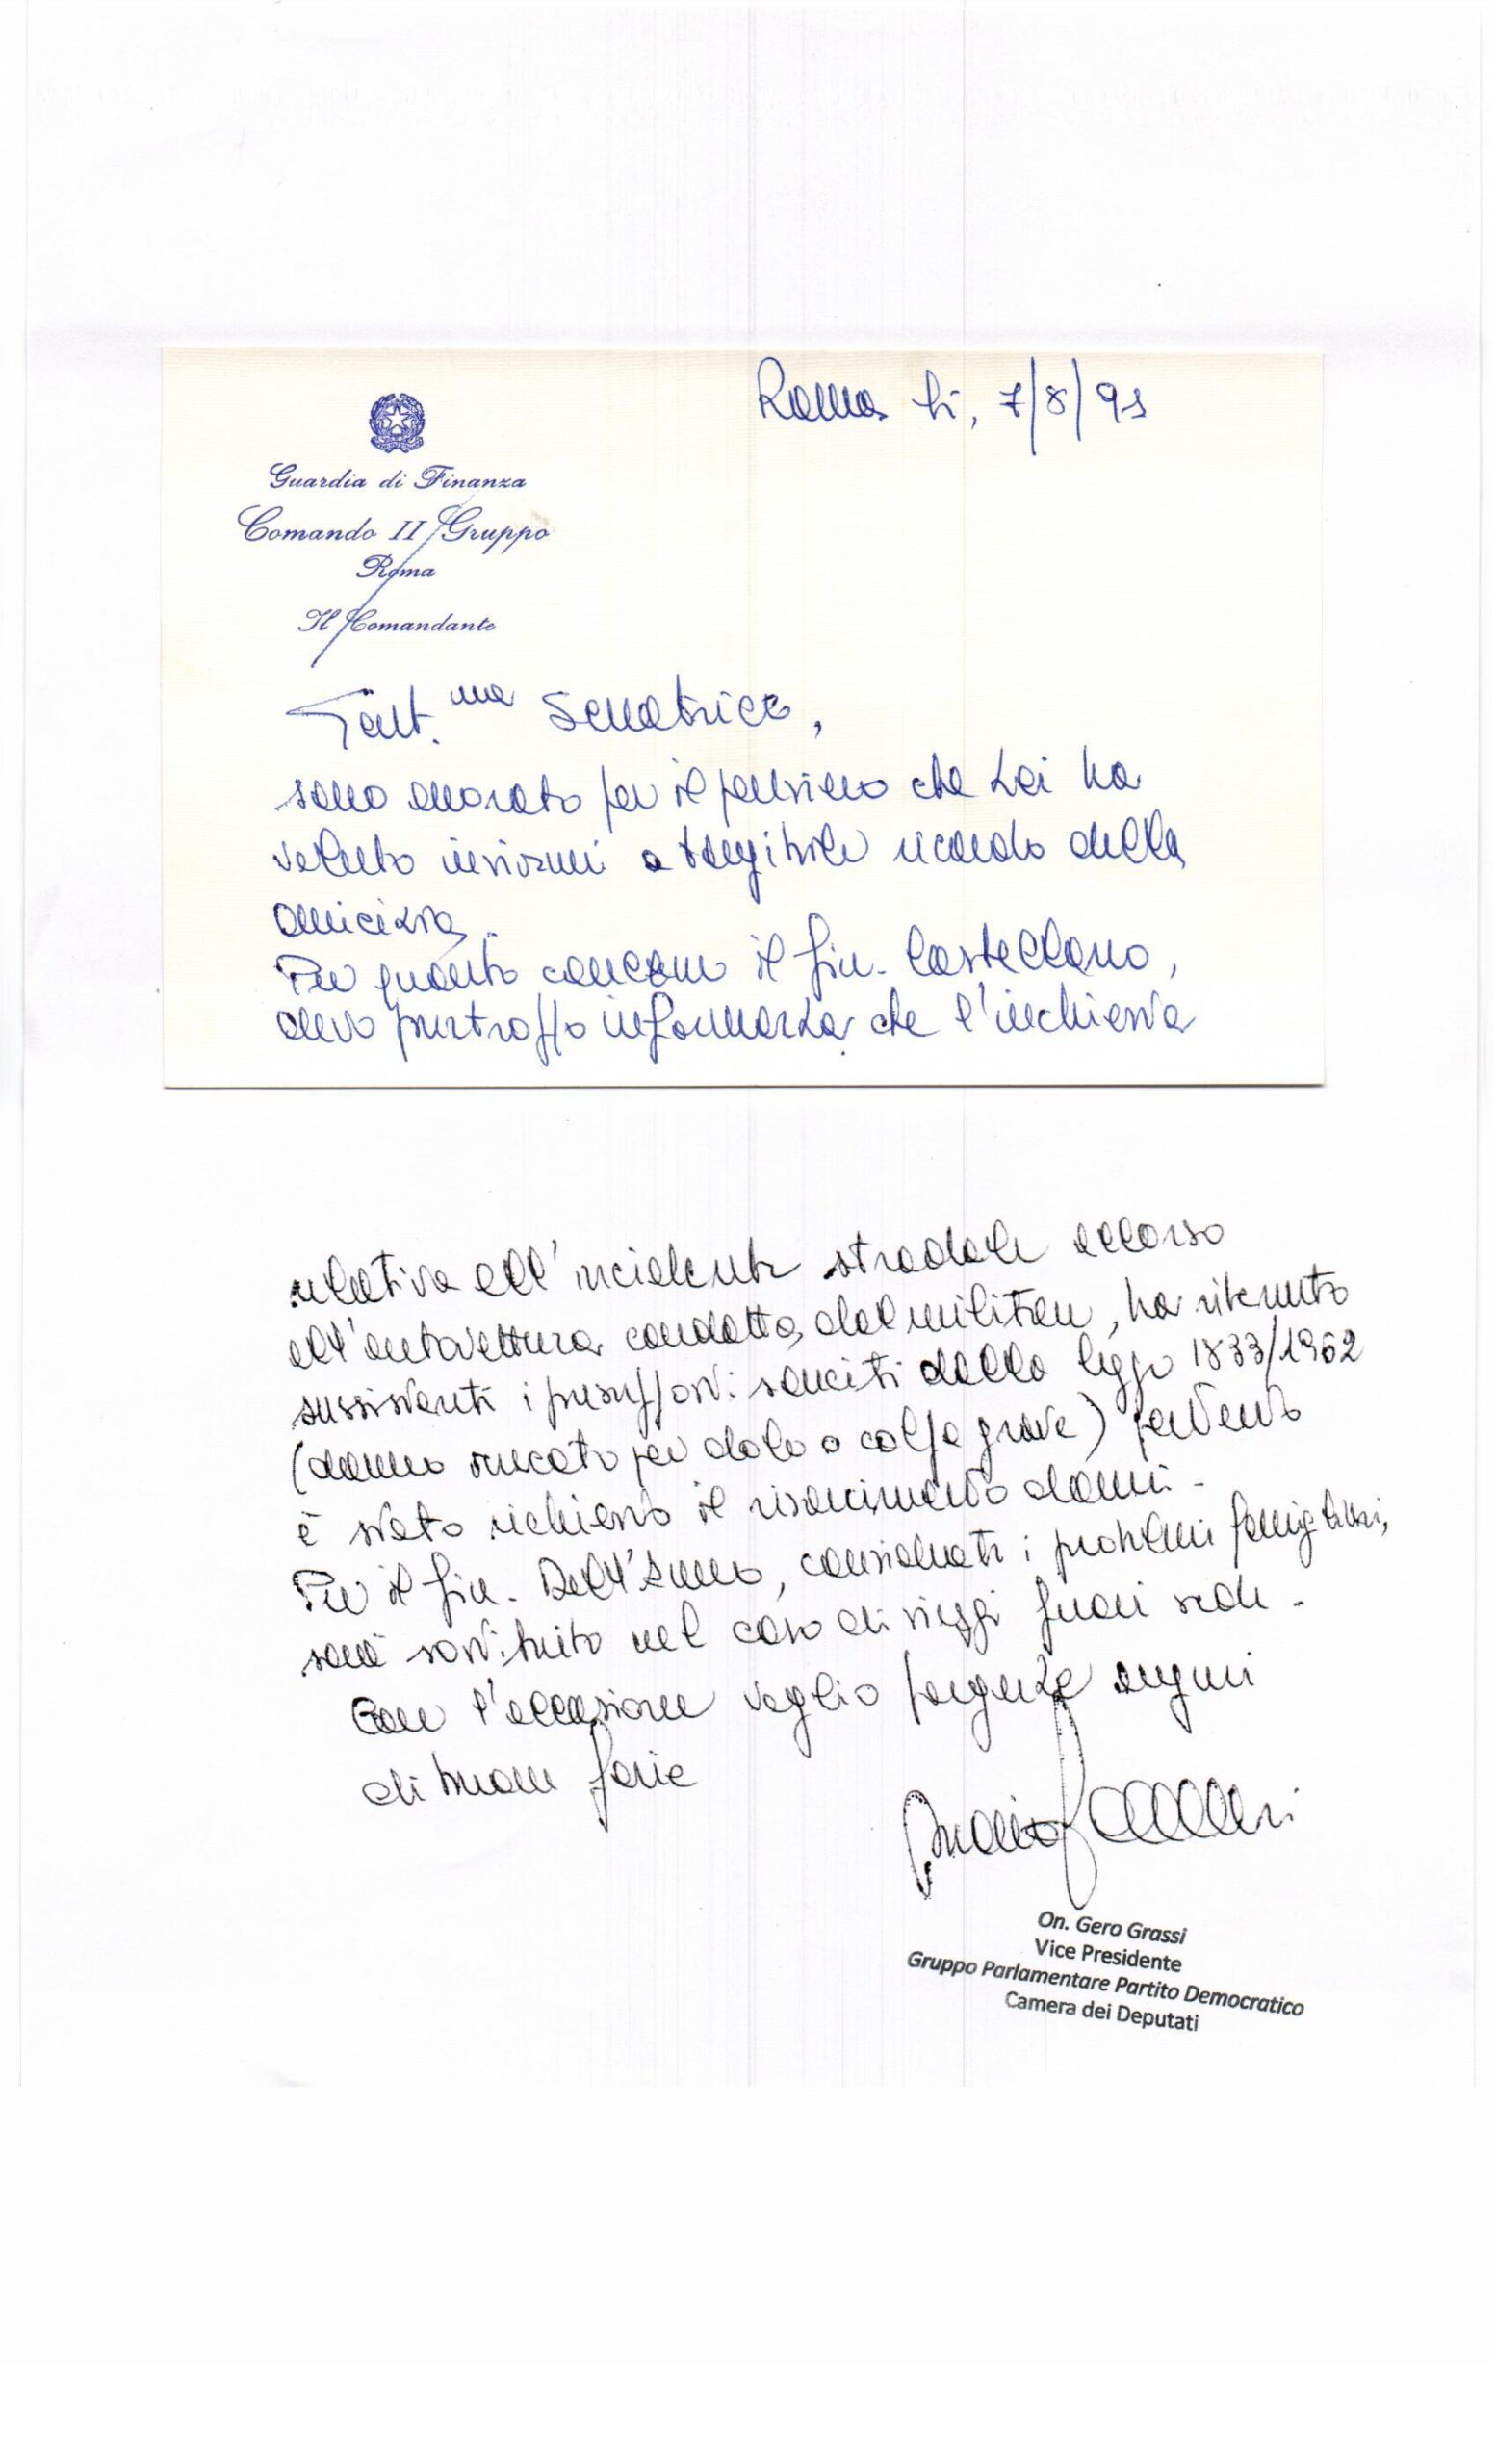 Roma lì, 7/8/91
Guardia di Finanza
Comando II Gruppo
Roma
Il Comandante
Gent.ma Senatrice,
sono onorato per il pensiero che Lei ha
voluto inviarmi a tangibile ricordo della
amicizia.
Per quanto concerne il fin. Castellano,
devo purtroppo informarLa che l'inchiesta
relativa all'incidente stradale occorso
all'autovettura condotta dal militare, ha ritenuto
sussistenti i presupposti sanciti dalla legge 1833/1962
(danno causato per dolo o colpa grave) pertanto
è stato richiesto il risarcimento danni -
Per il fin. Dell'Anno, considerati i problemi famigliari,
sarà sostituito nel caso di viaggi fuori sede -
Con l'occasione voglio porgerLe auguri
di buone ferie
On. Gero Grassi
Vice Presidente
Gruppo Parlamentare Partito Democratico
Camera dei Deputati